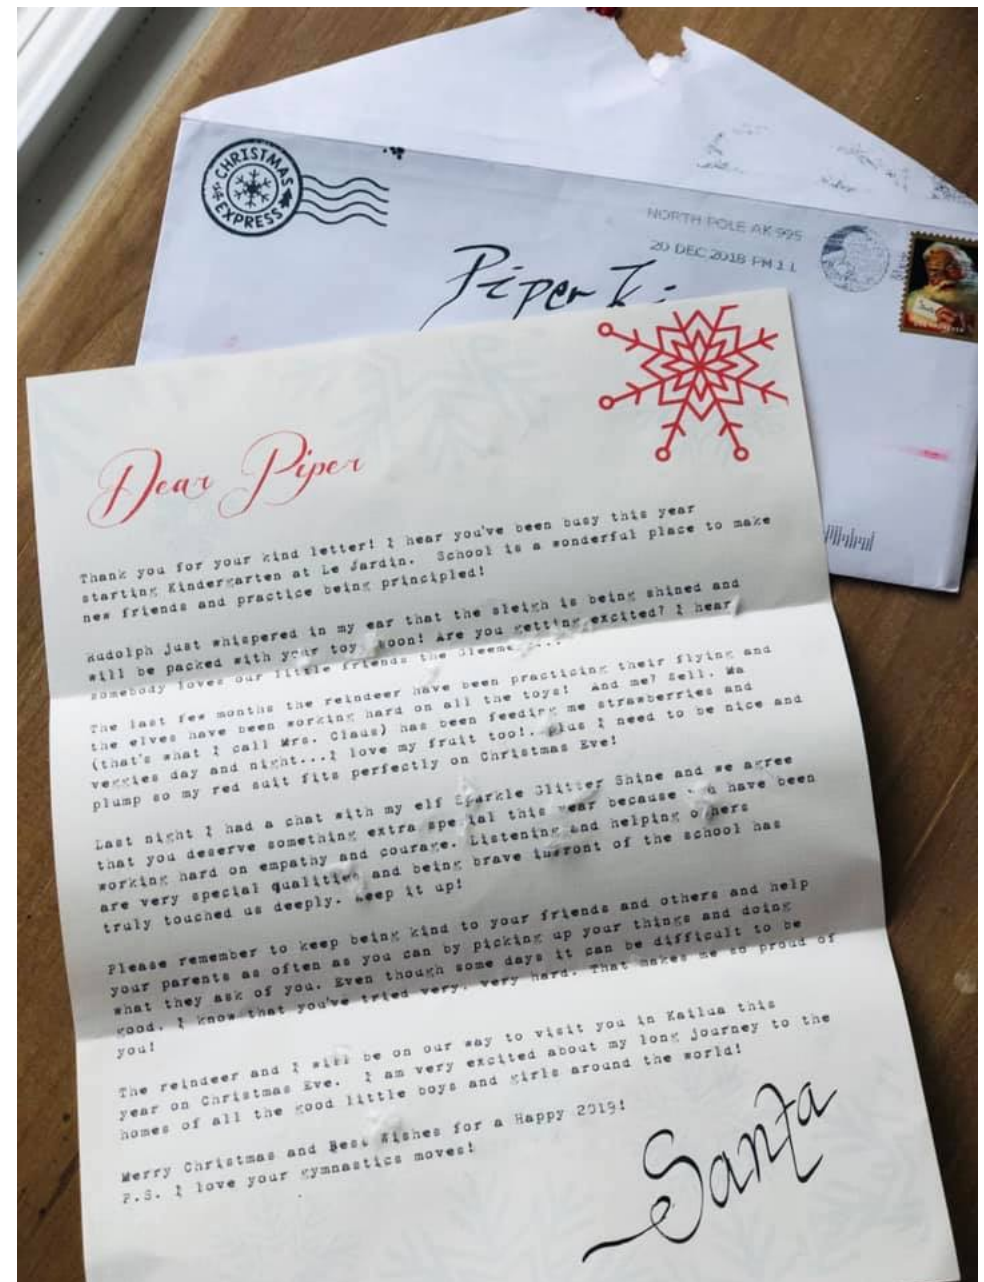 CHRISTMAS
EXPRESS
NORTH POLE AK 995
20 DEC 2018 PM 1 L
Piper K.
Dear Piper
Thank you for your kind letter! I hear you've been busy this year
starting Kindergarten at Le Jardin. School is a wonderful place to make
new friends and practice being principled!
Rudolph just whispered in my ear that the sleigh is being shined and
will be packed with your toy soon! Are you getting excited? I hear
somebody loves our little friends the
The last few months the reindeer have been practicing their flying and
the elves have been working hard on all the toys! And me? Well, Ma
(that's what I call Mrs. Claus) has been feeding me strawberries and
veggies day and night...I love my fruit too!. Plus I need to be nice and
plump so my red suit fits perfectly on Christmas Eve!
Last night I had a chat with my elf Sparkle Glitter Shine and we agree
that you deserve something extra special this year because you have been
working hard on empathy and courage. Listening and helping others
are very special qualities and being brave infront of the school has
truly touched us deeply. Keep it up!
Please remember to keep being kind to your friends and others and help
your parents as often as you can by picking up your things and doing
what they ask of you. Even though some days it can be difficult to be
good. I know that you've tried very, very hard. That makes me so proud of
you!
The reindeer and I will be on our way to visit you in Kailua this
year on Christmas Eve. I am very excited about my long journey to the
homes of all the good little boys and girls around the world!
Merry Christmas and Best Wishes for a Happy 2019!
P.S. I love your gymnastics moves!
Santa